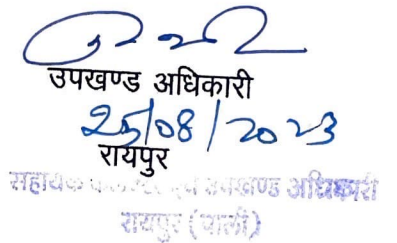 उपखण्ड अधिकारी
25/08/2023
रायपुर
सहायक कलेक्टर एवं उपखण्ड अधिकारी
रायपुर (पाली)